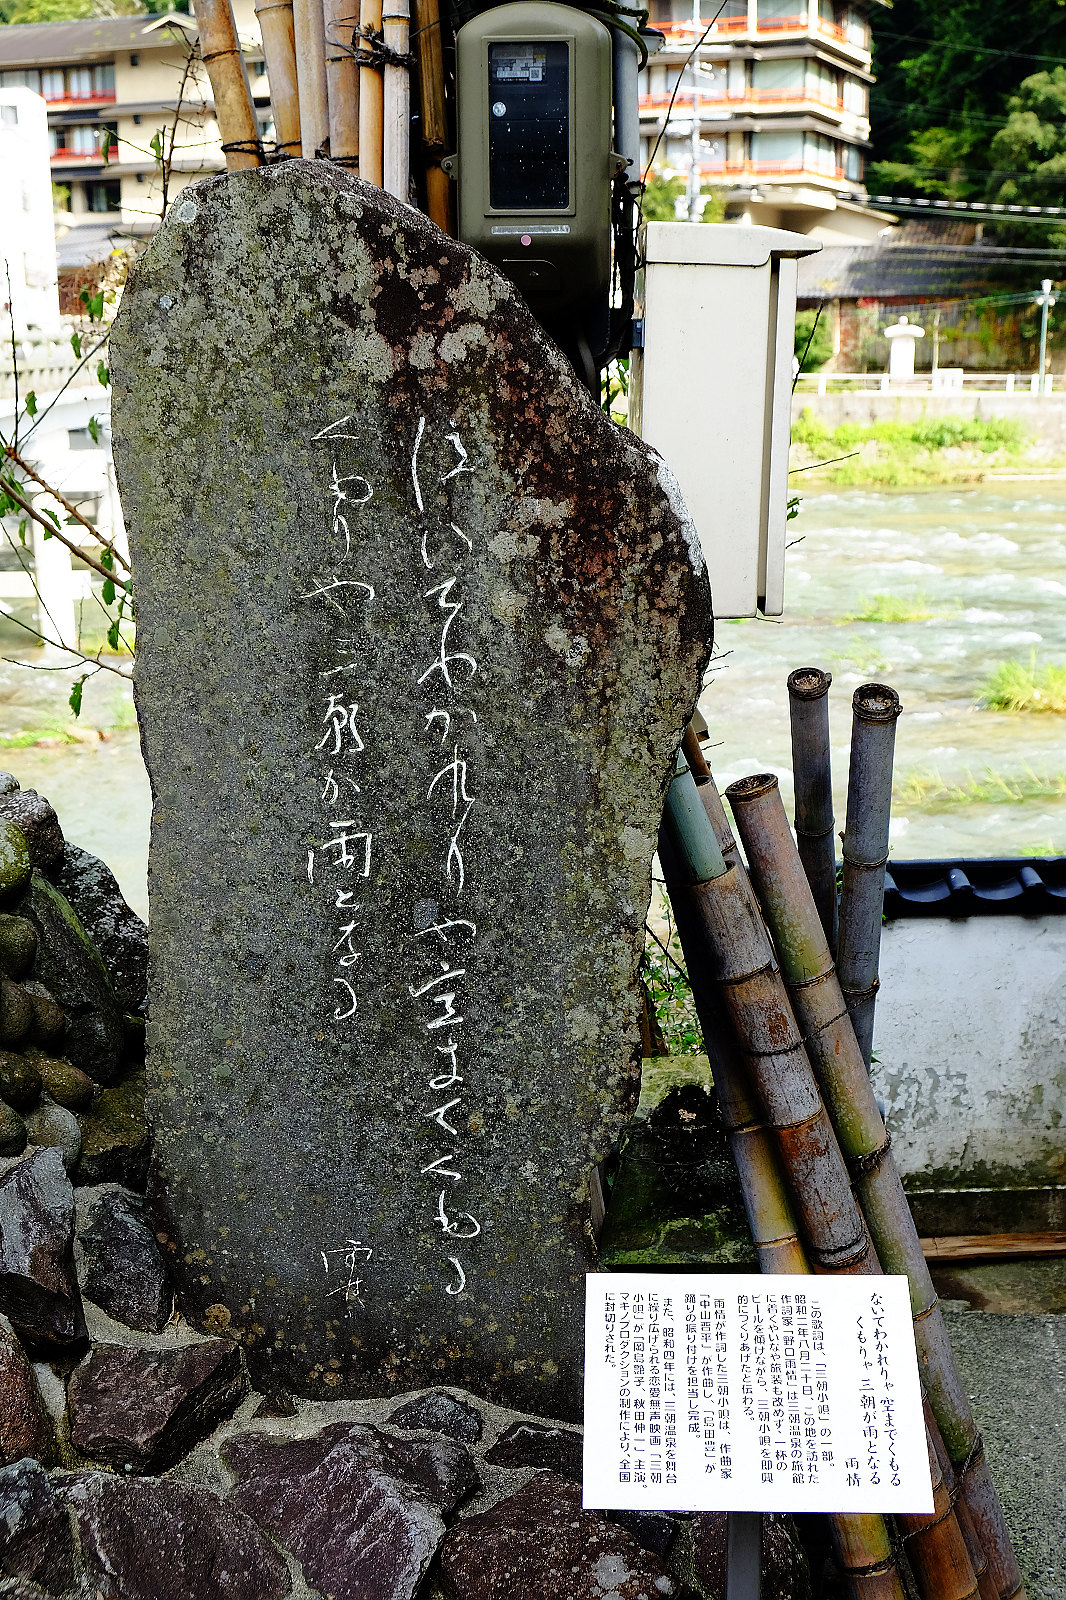 泣いてわかれりや空まてくもる
くもりや三朝か雨となる
ないてわかれりゃ 空までくもる
くもりゃ 三朝が雨となる
雨情
この歌詞は、「三朝小唄」の一部。
昭和二年八月二十日、この地を訪れた
作詞家「野口雨情」は三朝温泉の旅館
に着くやいなや旅装も改めず、一杯の
ビールを傾けながら、三朝小唄を即興
的につくりあげたと伝わる。
雨情が作詞した三朝小唄は、作曲家
「中山晋平」が作曲し、「島田豊」が
踊りの振り付けを担当し完成。
また、昭和四年には、三朝温泉を舞台
に繰り広げられる恋愛無声映画「三朝
小唄」が「岡島艶子、秋田伸一」主演。
マキノプロダクションの制作により、全国
に封切りされた。